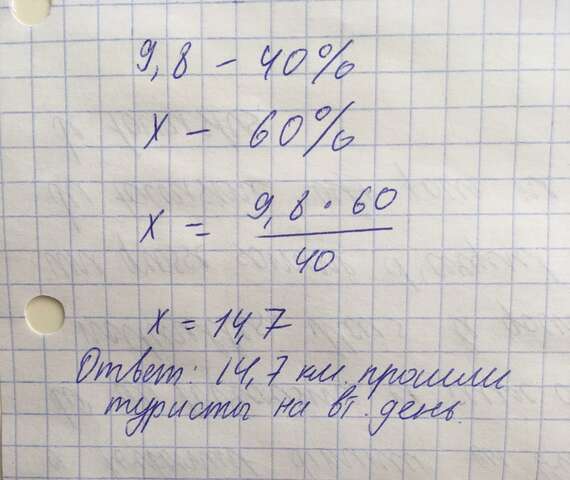 9,8 - 40%
x - 60%
x = 9,8 · 60 / 40
x = 14,7
Ответ: 14,7 км. прошли
туристы на вт. день.